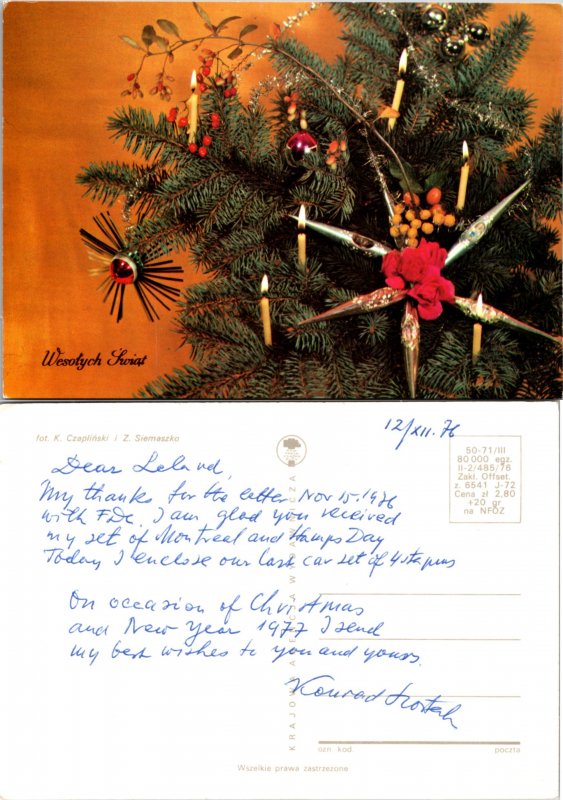 Wesołych Świąt
fot. K. Czapliński i Z. Siemaszko
12/XII. 76
50-71/III
80 000 egz.
II-2/485/76
Zakł. Offset.
z. 6541 J-72
Cena zł 2,80
+20 gr
na NFOZ
Dear Leland,
My thanks for the letter Nov 15. 1976
with FDC. I am glad you received
my set of Montreal and Stamps Day
Today I enclose our last car set of 4 stamps
On occasion of Christmas
and New Year 1977 I send
my best wishes to you and yours.
Konrad
KRAJOWA AGENCJA WYDAWNICZA
ozn. kod poczta
Wszelkie prawa zastrzeżone